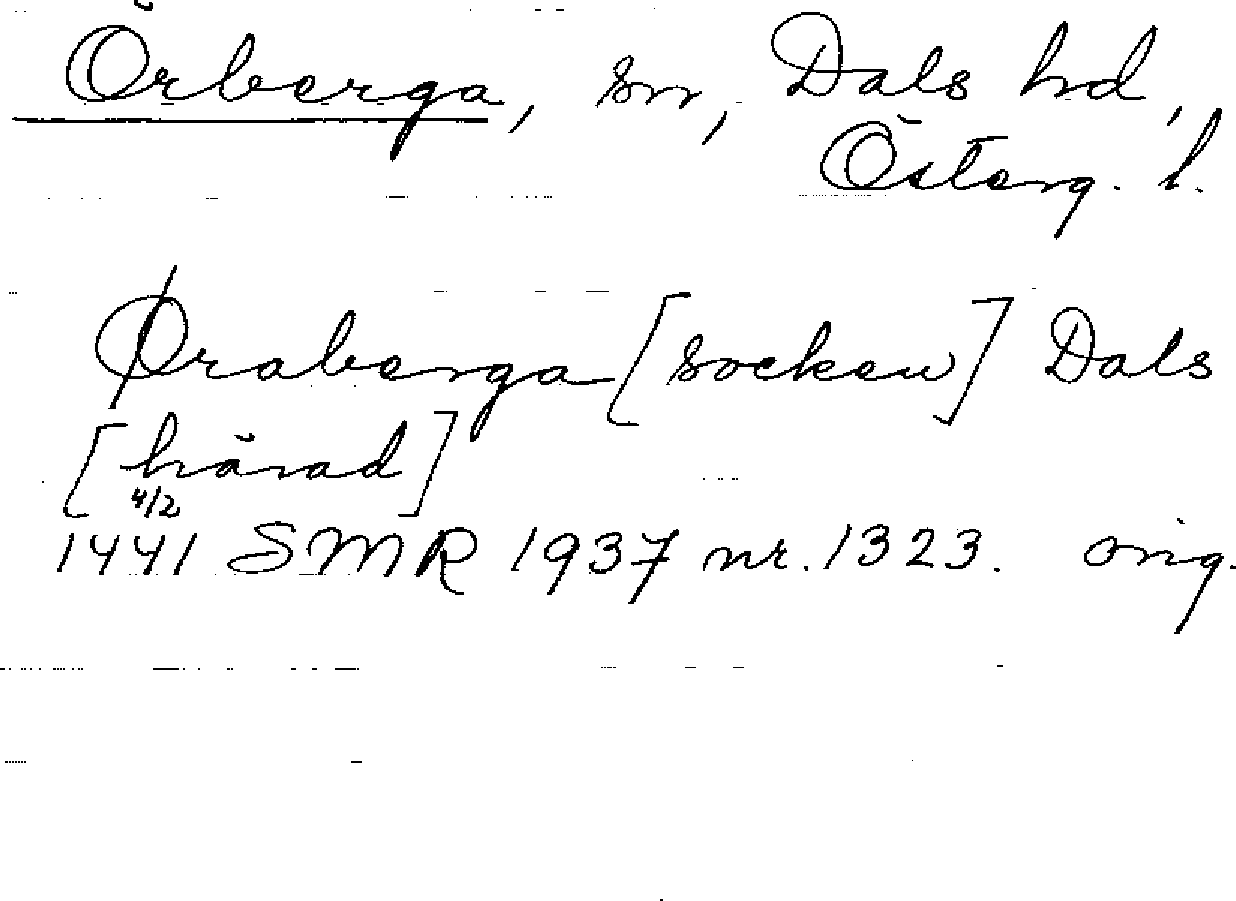 Örberga, sn, Dals hd,
Österg. l.
Øraberga [socken] Dals
[härad]
4/2
1441 SMR 1937 nr. 1323. orig.